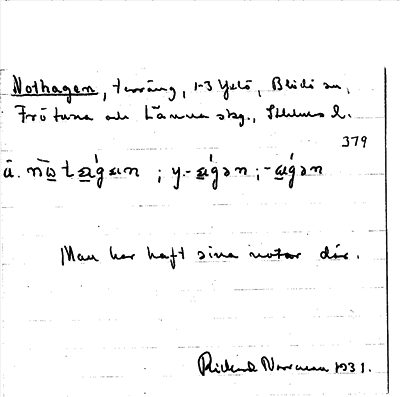 Nothagen, terräng, 1-3 Yxlö, Blidö sn,
Frötuna och Länna skg., Sthlms l.
379
ä. nωtága̶n ; y.-ágən ; -ágən
Man har haft sina notar där.
Rickard Norrman 1931.